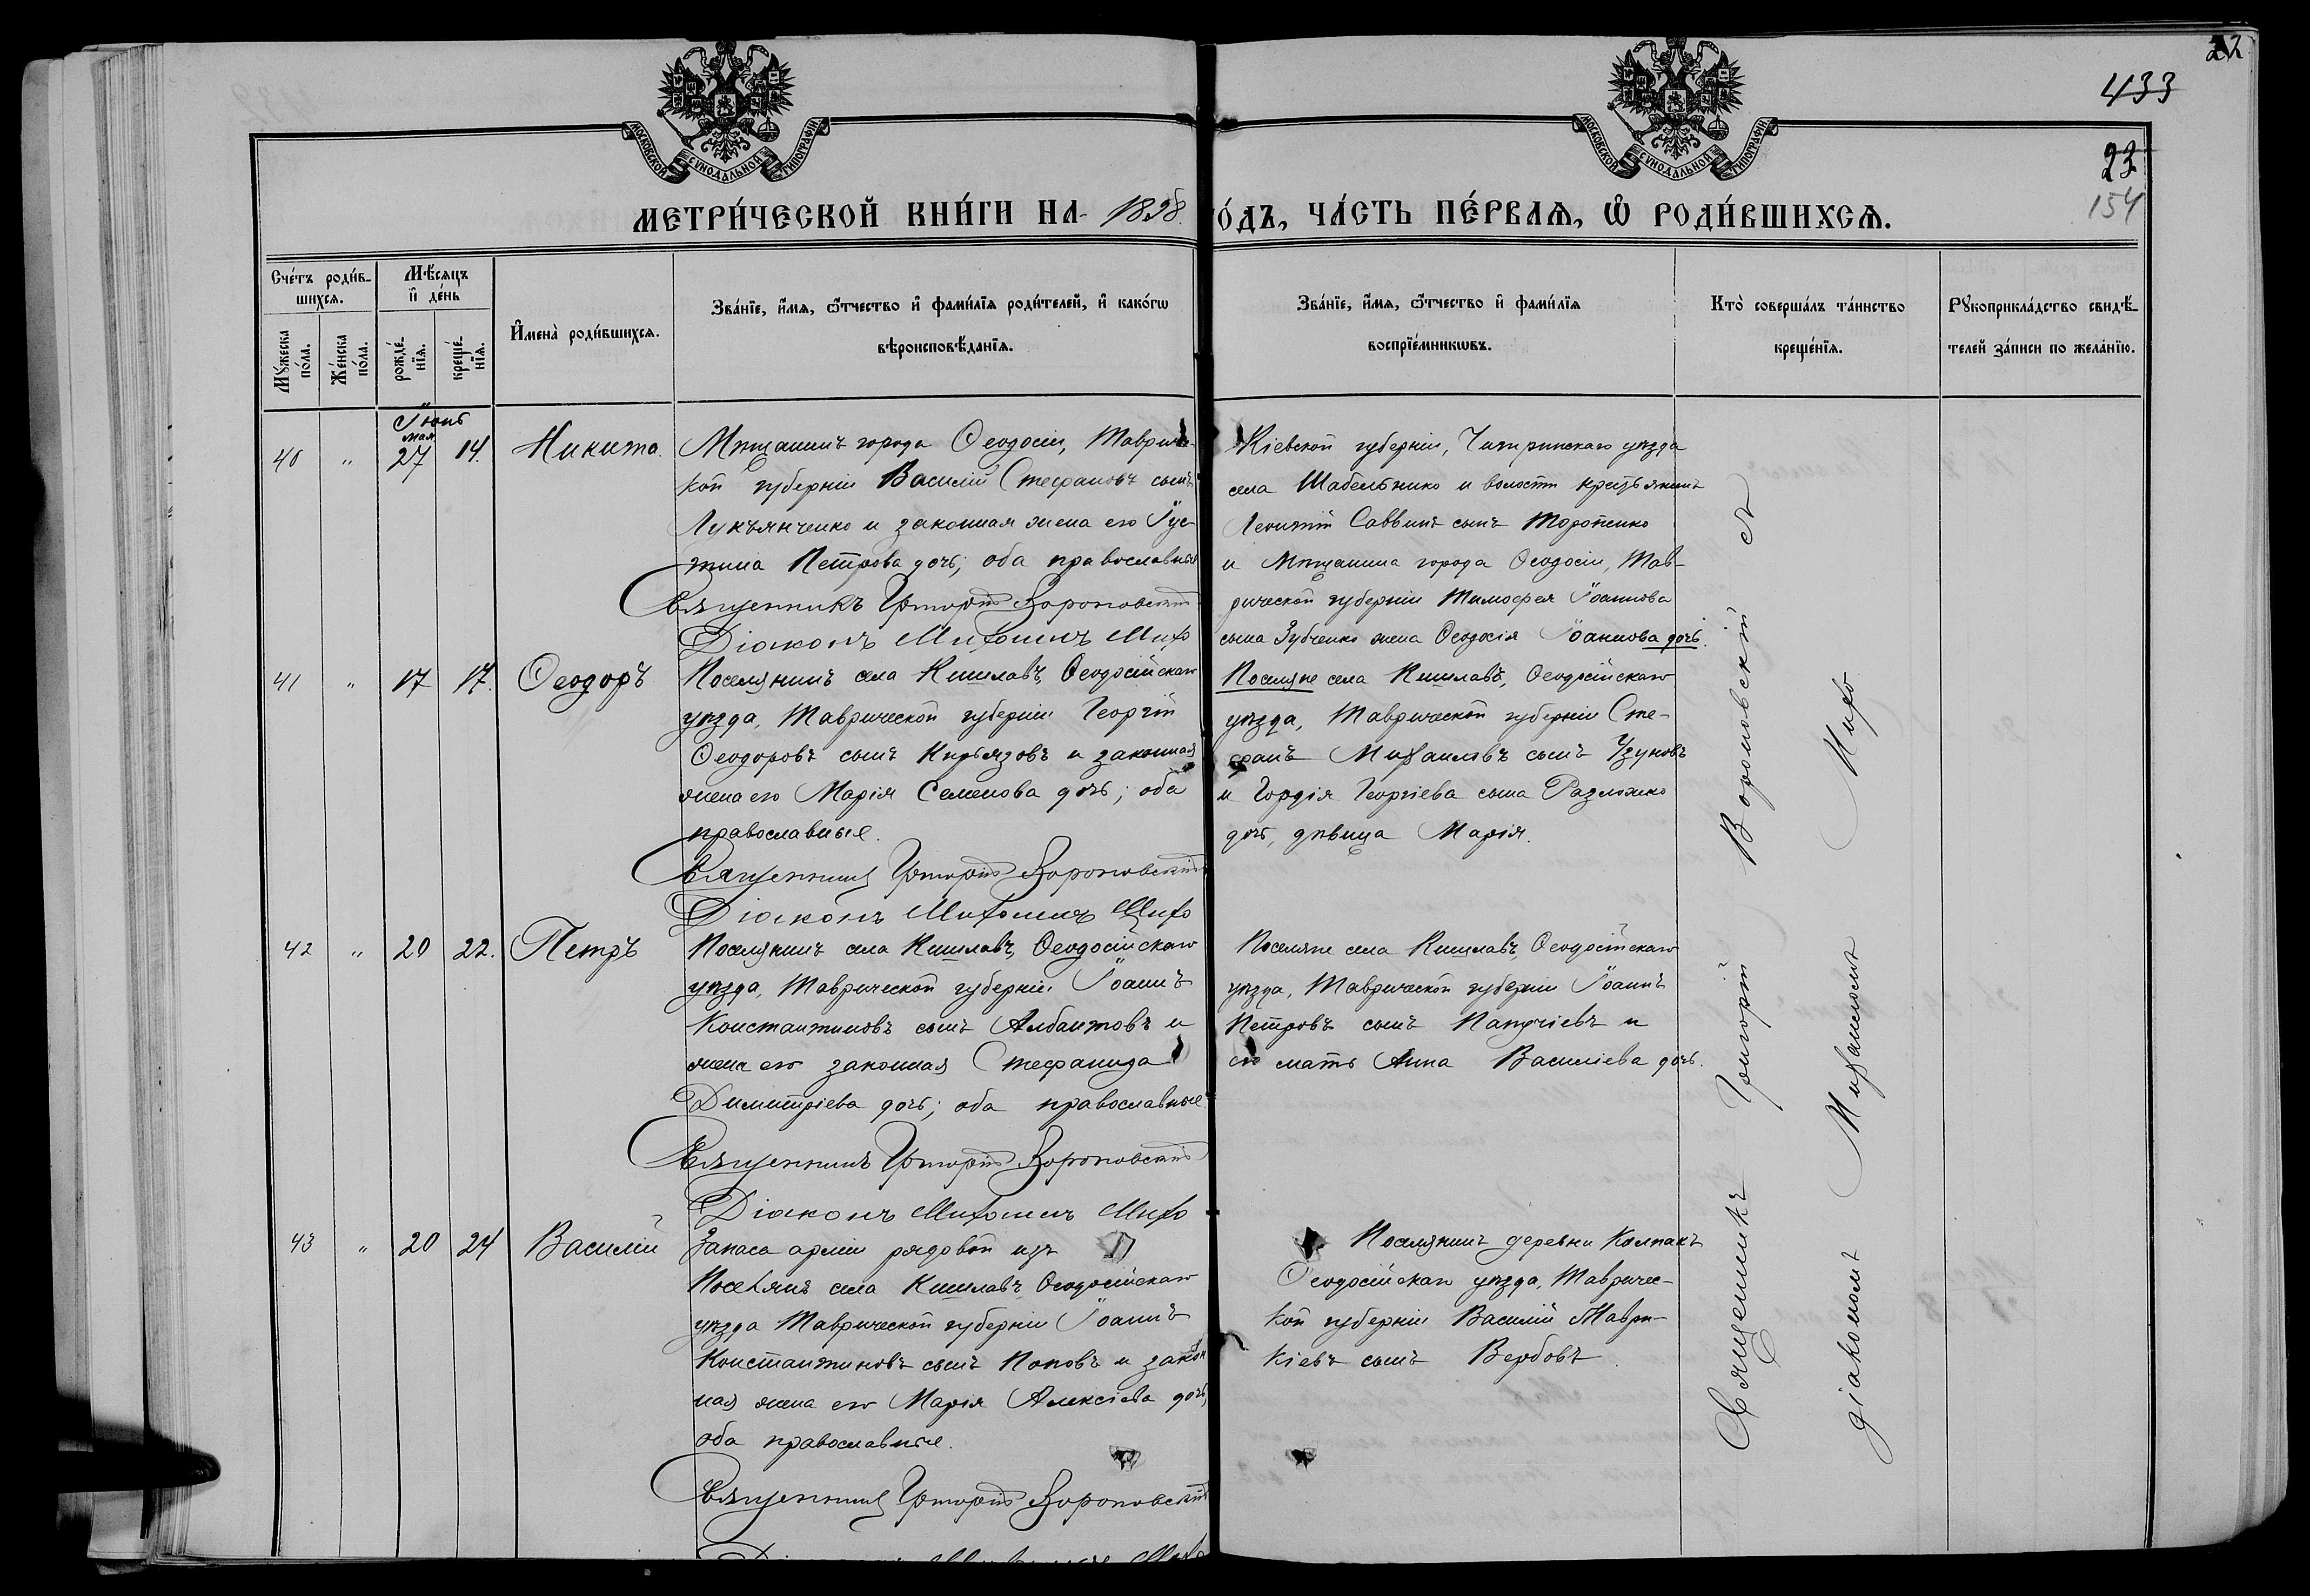 22
433
23
154
МОСКОВСКОЙ СѴНОДАЛЬНОЙ ТИПОГРАФІИ.
МОСКОВСКОЙ СѴНОДАЛЬНОЙ ТИПОГРАФІИ.
МЕТРИ́ЧЕСКОЙ КНИ́ГИ НА 1898 ГО́ДЪ, ЧА́СТЬ ПЕ́РВАЯ, Ѡ҆ РОДИ́ВШИХСЯ.
Сче́тъ роди́в-
шихся.
Мꙋ́жеска по́ла.
Же́нска по́ла.
Мѣ́сяцъ
и҆ де́нь
рожде́-
нїя.
креще́-
нїя.
И҆мена̀ роди́вшихся.
Зва́нїе, и҆́мя, ѻ҆́тчество и҆ фами́лїя роди́телей, и҆ како́гѡ
вѣроисповѣ́данїя.
Зва́нїе, и҆́мя, ѻ҆́тчество и҆ фами́лїя
воспрїе́мникѡвъ.
Кто̀ соверша́лъ та́инство
креще́нїя.
Рꙋкоприкла́дство свидѣ́-
телей за́писи по жела́нїю.
Іюнь
мая
40 " 27 14. Никита.
Мѣщанинъ города Ѳеодосіи,Тавриче-
кой губерніи Василій Стефановъ сынъ
Лукьянченко и законная жена его Іус-
тина Петрова дочь; оба православные
Священникъ Григорій Вороновскій
Діаконъ Митофанъ Михо
Кіевской губерніи, Чигиринскаго уѣзда
села Шабельнико и волости крестьянинъ
Леонтій Саввинъ сынъ Торопенко
и Мѣщанина города Ѳеодосіи, Тав-
рической губерніи Тимофея Іоаннова
сына Зубченко жена Ѳеодосія Іоаннова дочь.
41 " 17 17. Ѳеодоръ
Поселянинъ села Кишлавъ, Ѳеодосійскаго
уѣзда, Таврической губерніи Георгій
Ѳеодоровъ сынъ Кирьязовъ и законная
жена его Марія Семенова дочь; оба
православные.
Священникъ Григорій Вороновскій
Діаконъ
Поселяне села Кишлавъ, Ѳеодосійскаго
уѣзда, Таврической губерніи Сте-
фанъ Михаиловъ сынъ Узуновъ
и Гордія Георгіева сына Разложко
дочь, дѣвица Марія.
42 " 20 22. Петръ
Поселянинъ села Кишлавъ, Ѳеодосійскаго
уѣзда, Таврической губерніи Іоаннъ
Константиновъ сынъ Албантовъ и
жена его законная Стефанида
Димитріева дочь; оба православные
Священникъ Григорій Вороновскій
Діаконъ
Поселяне села Кишлавъ, Ѳеодосійскаго
уѣзда, Таврической губерніи Іоаннъ
Петровъ сынъ и
его мать Анна Василіева дочь.
43 " 20 24 Василій
Запаса арміи рядовой изъ
Поселянъ села Кишлавъ, Ѳеодосійскаго
уѣзда Таврической губерніи Іоаннъ
Константиновъ сынъ Поповъ и закон
ная жена его Марія Алексіева дочь,
оба православные.
Священникъ Григорій Вороновскій
Поселянинъ деревни Колпакъ
Ѳеодосійскаго уѣзда, Тавричес-
кой губерніи Василій Маври-
кіевъ сынъ Вербовъ.
Священникъ Григорій Вороновскій съ
діакономъ